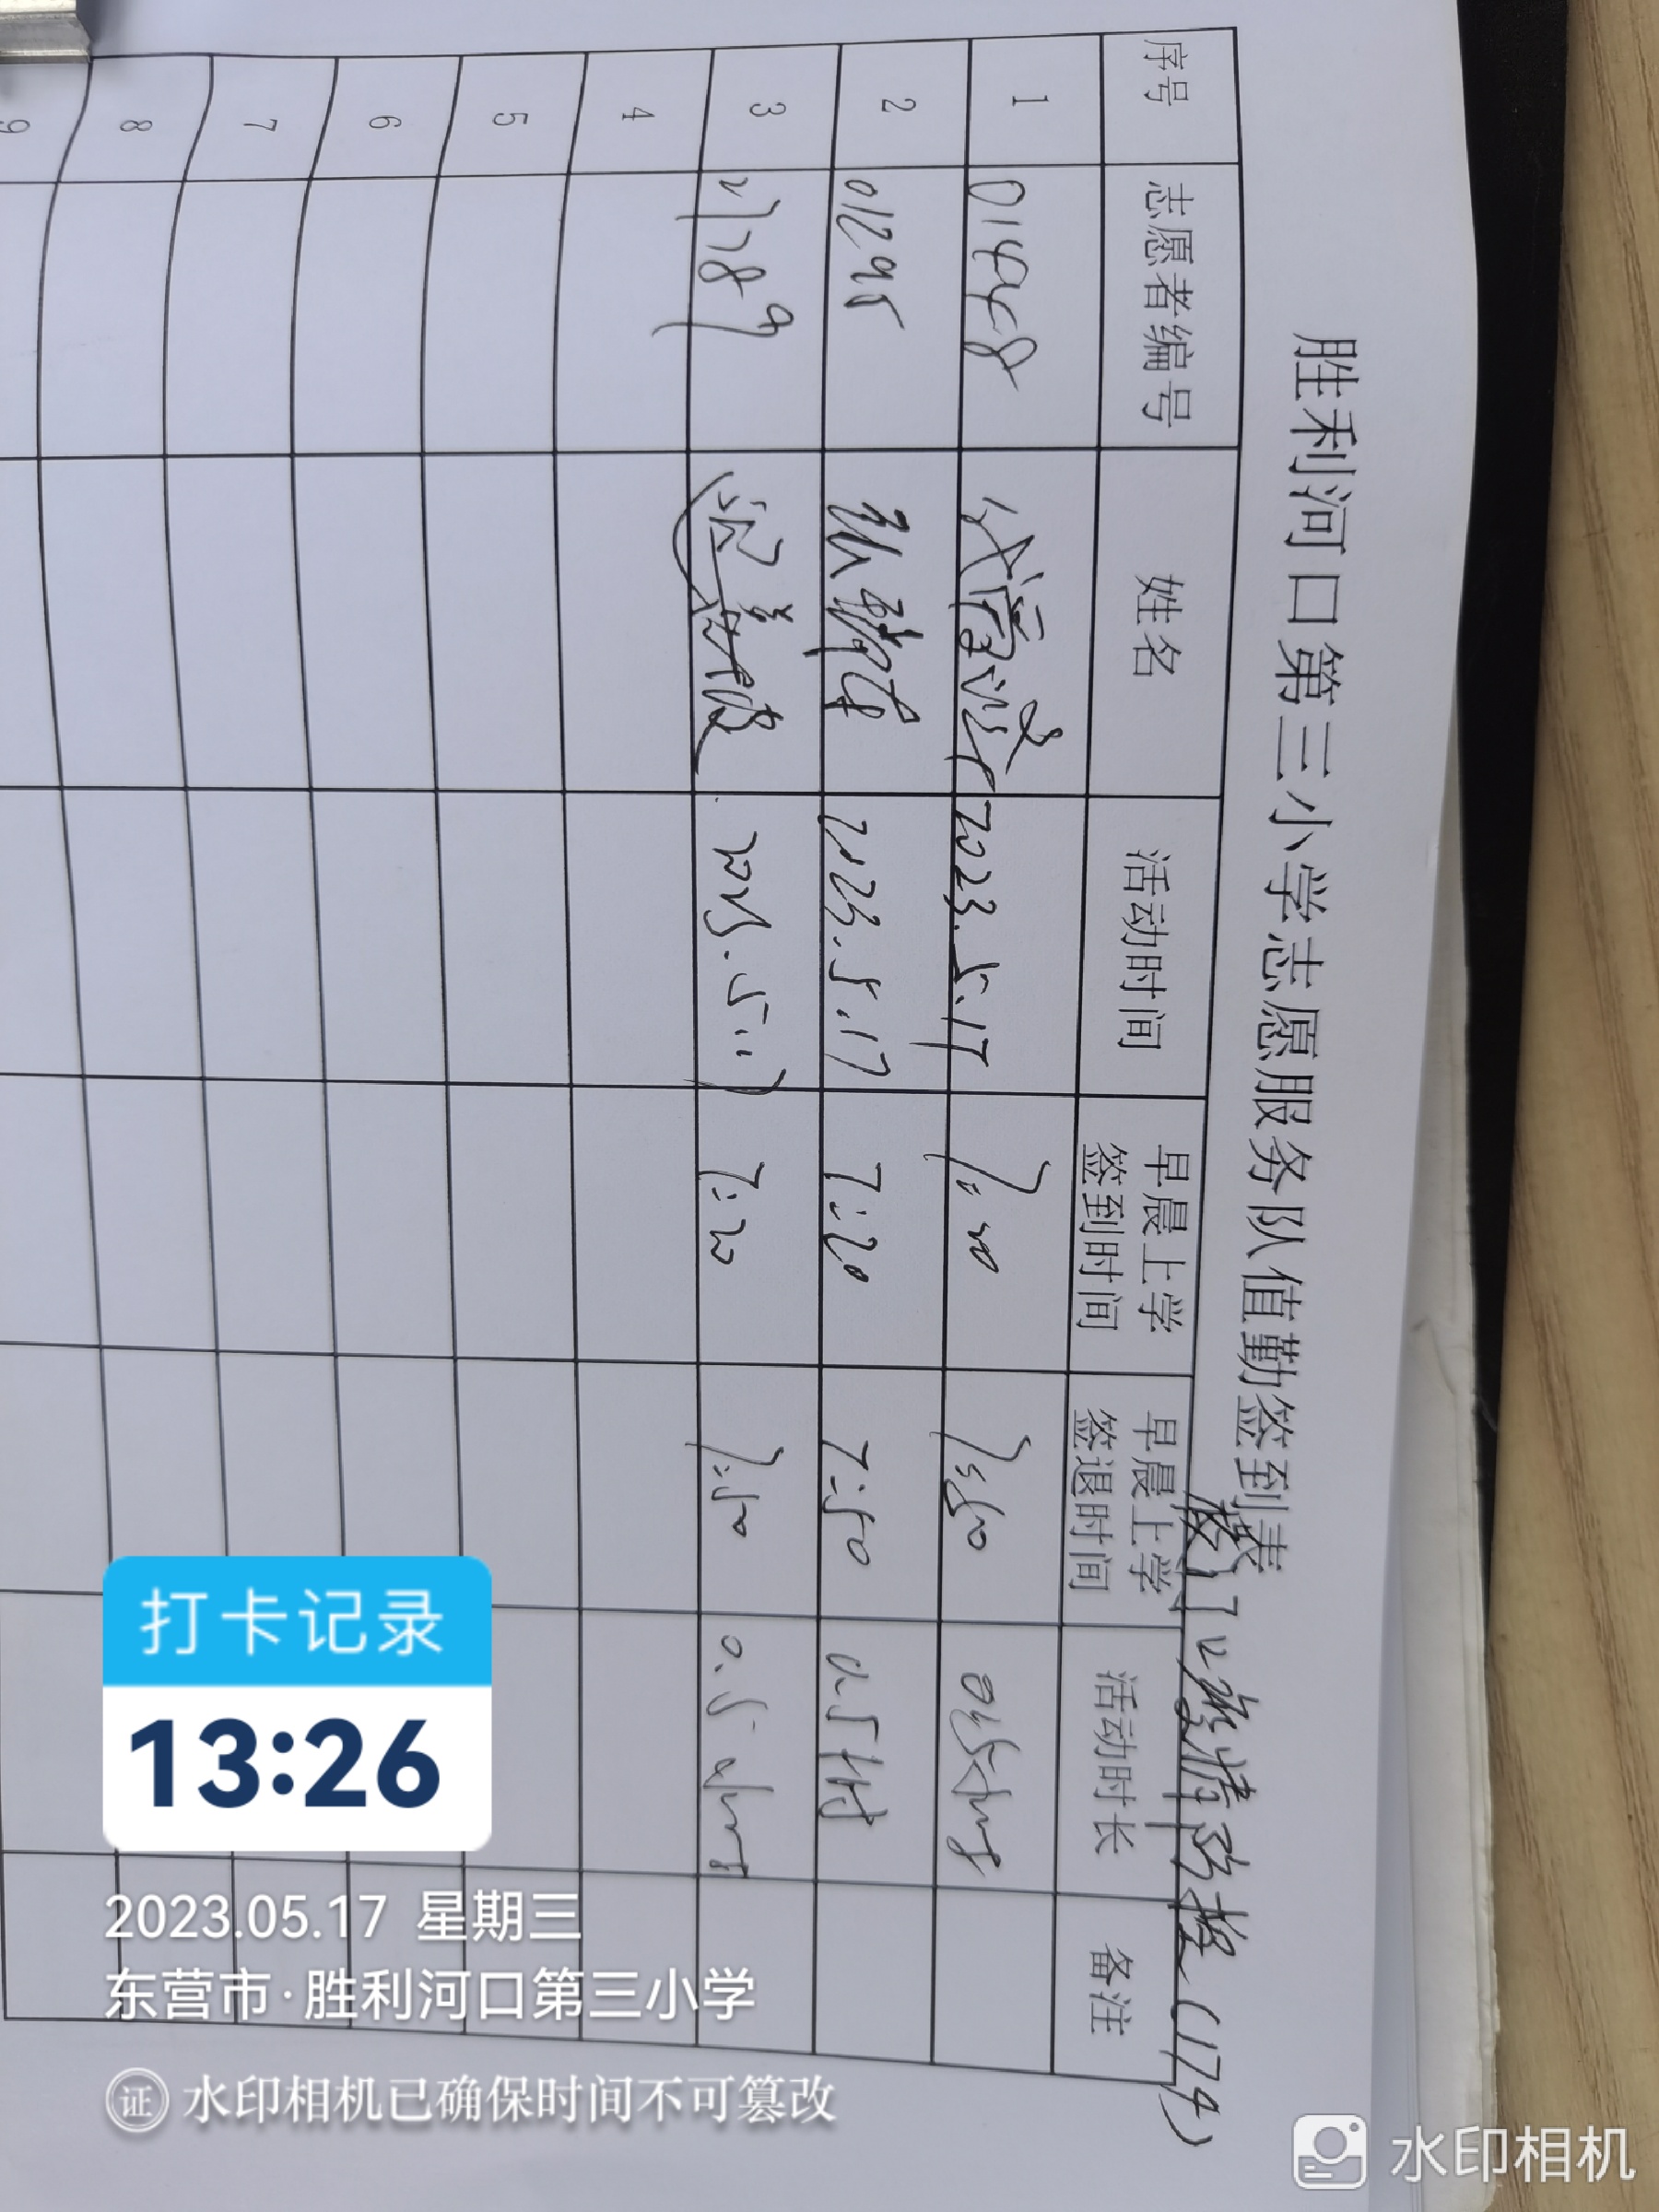 胜利河口第三小学志愿服务队值勤签到表
校门口疫情防控（17号）
序号 志愿者编号 姓名 活动时间 早晨上学签到时间 早晨上学签退时间 活动时长 备注
1 01468 2023.5.17 7:20 7:50 0.5小时
2 01295 2023.5.17 7:20 7:50 0.5小时
3 2023.5.17 7:20 7:50 0.5小时
4
5
6
7
8
9
打卡记录
13:26
2023.05.17 星期三
东营市·胜利河口第三小学
证 水印相机已确保时间不可篡改
水印相机